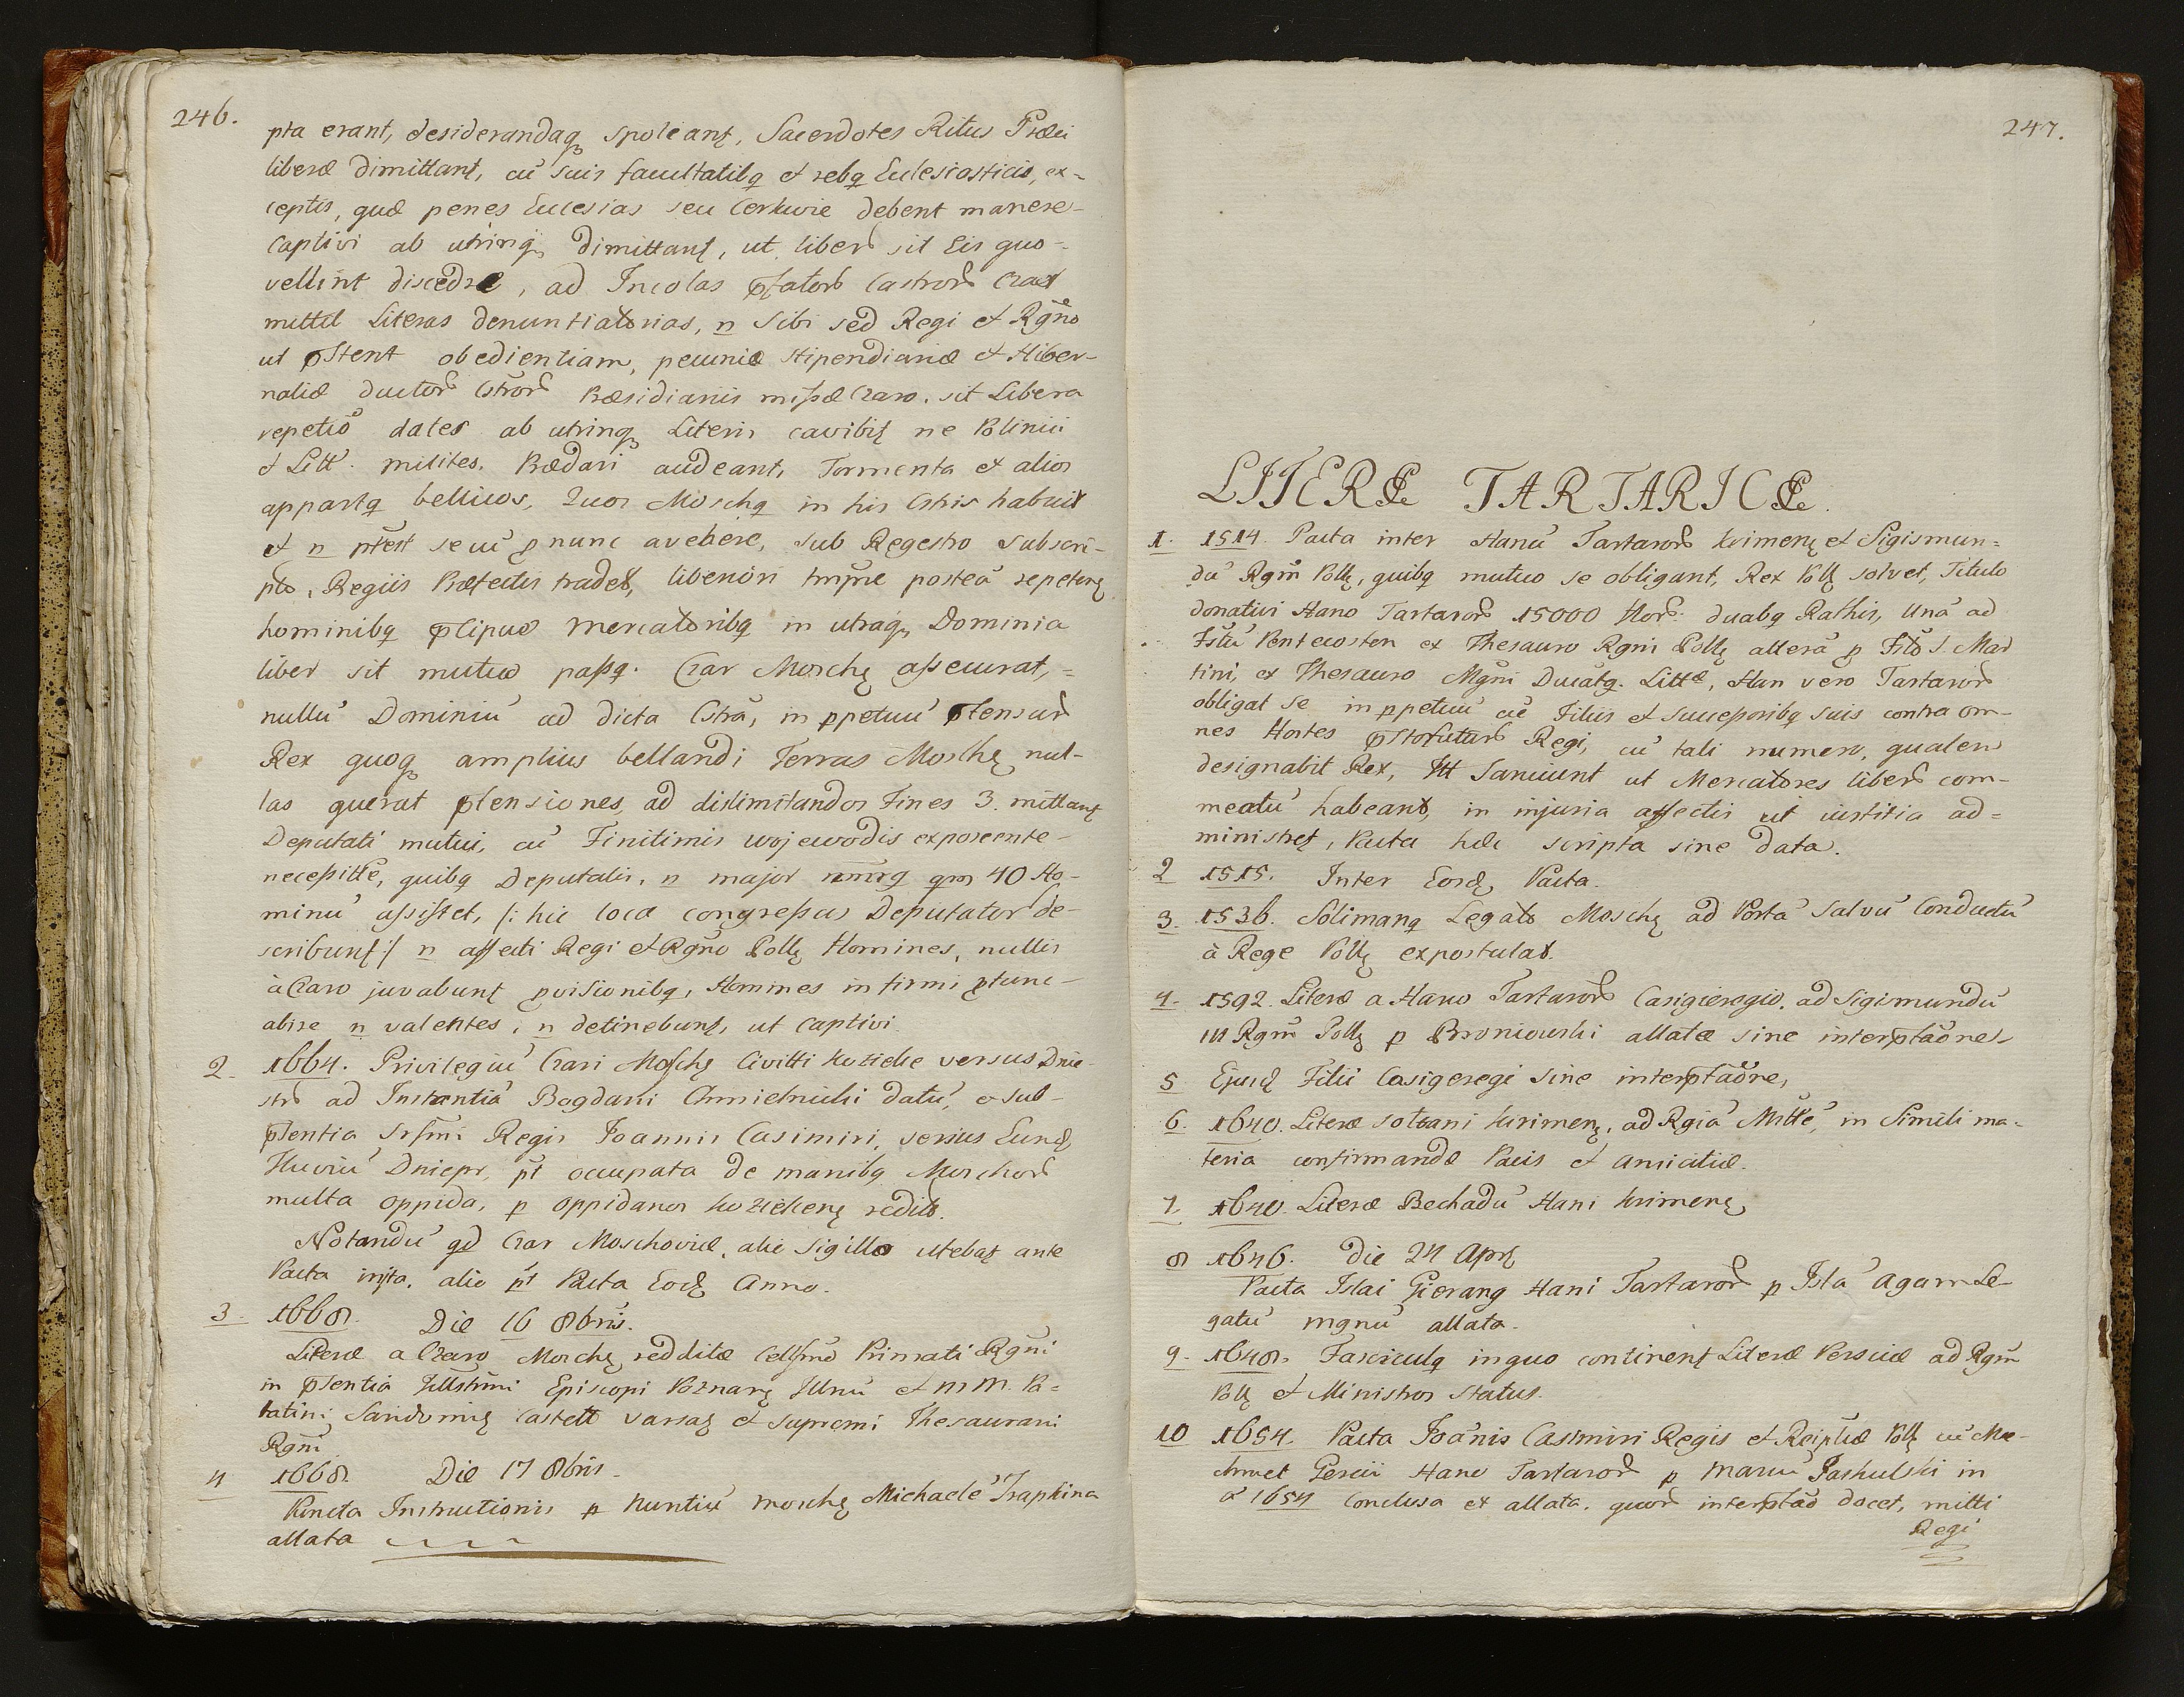 246.
pta erant, desiderandaq spoleant, Sacerdotes Ritus Græci
liberè dimittant, cū suis facultatibq et rebq Eclesiasticis, ex=
ceptis, quæ penes Ecclesias seu Cerkwie debent manere-
Captivi ab utrinq dimittant, ut liber sit Eis quo-
vellint discedre, ad Incolas Castror Czar
mittet Literas denuntiatorias, n sibi sed Regi et Rgño
ut pstent obedientiam, pecuniæ stipendiariæ et Hiber-
naliæ ductor Cstror Præsidiariis missæ Czaro. sit Libera
repetiō dates ab utrinq Literis cavibit ne Polinii
et Litt. milites. Prædari audeant, Tormenta et alios
appartq bellicos, Quos Moschq in his Cstris habuit
et n ptest secū p nunc avehere, sub Regestro subscri-
pto, Regiis Præfectis tradet, liberiori tmpre posteà repetens
hominibq pcipuè mercatoribq in utraq Dominia
liber sit mutuo passq. Czar Moschę assecurat,=
nullū Dominiū ad dicta Cstra, in ppetuū ptensur
Rex quoq amplius bellandi Terras Moschę nul-
las quærat ptensiones, ad dislimitandos Fines 3. mittant
Deputati mutui, cū Finitimis wojewodis exposcente-
necessitte, quibq Deputatis, n major nmrq qm 40 Ho-
minū assistet, /: hic loca congressus Deputator de-
scribunt :/ n affecti Regi et Rgño Pollę Homines, nullis
à Czaro juvabunt pvisionibq, Homines infirmi ptunc-
abire n valentes, n detinebunt, ut captivi.
2. 1664. Privilegiū Czari Moschę Civitti Kozielce versus Dnie
str ad Instantiā Bogdani Chmielnicki datū, e sub-
ptentia Srsmi Regis Joannis Casimiri, versus Eund
Fluviū Dniepr, pt occupata de manibq Moschor
multa oppida, p oppidanos Kozielcens reditō.
Notandū qd Czar Moschoviæ, alio sigillo utebat ante
Pacta inita. alio pt Pacta Eod Anno.
3. 1668. Die 16 8bris.
Literæ a Czaro Moschę redditæ Cellsmo Primati Rgñi
in ptentia Illstrmi Episcopi Poznanę Illnū et M M. Pa=
latini Sandomię Castell Varsaę et Supremi Thesaurarii
Rgñi
4 1668. Die 17 8bris.
Puncta Instructionis p Nuntiū moschę Michaelē Trapkina
allata
247.
LITERÆ TARTARICÆ.
1. 1514. Pacta inter Hanū Tartaror Krimenę et Sigismun=
dū Rgm Pollę, quibq mutuo se obligant, Rex Pollę solvet, Titulo
donativi Hano Tartaror 15000 flor. duabq Rathis, Unā ad
Fstū Pentecosten ex Thesauro Rgni Pollę alterā p Fsto S. Mar
tini, ex Thesauro Mgni Ducatq. Littæ, Han vero Tartaror
obligat se in ppetuū cū Filiis et successoribq suis contra om-
nes Hostes pstofutur Regi, cū tali numero, qualem
designabit Rex, Itt sanciunt ut Mercatores liber com-
meatū habeant, in injuria affectis ut iustitia ad=
ministret, Pacta hæc scripta sine data.
2 1515. Inter Eosd Pacta.
3. 1536. Solimanq Legato Moschę ad Portā salvū Conductū
à Rege Pollę expostulat.
4. 1592. Literæ a Hano Tartaror Casigieregio. ad Sigimundū
III Rgm Pollę p Broniowski allatæ sine interptaōne
5 Ejusd Filii Casigeregi sine interptaōne,
6. 1640. Literæ soltani Krimenę, ad Rgiā Msttē, in simili ma=
teria confirmandæ Pacis et amicitiæ.
7. 1640. Literæ Bechadū Hani Krimenę
8 1646. Die 24 Aprę
Pacta Islai Gierang Hani Tartaror p Isla Agam Le-
gatū mgnū allata.
9. 1648. Fasciculq in quo continent Literæ Persicæ ad Rgm
Pollę et Ministros Status.
10 1654. Pacta Joānis Casimiri Regis et Reiplicæ Pollę cū Ma-
chmet Gereii Hano Tartaror p Mariū Jaskulski in
aō 1654 Conclusa et allata. quor interptaō docet, mitti
Regi